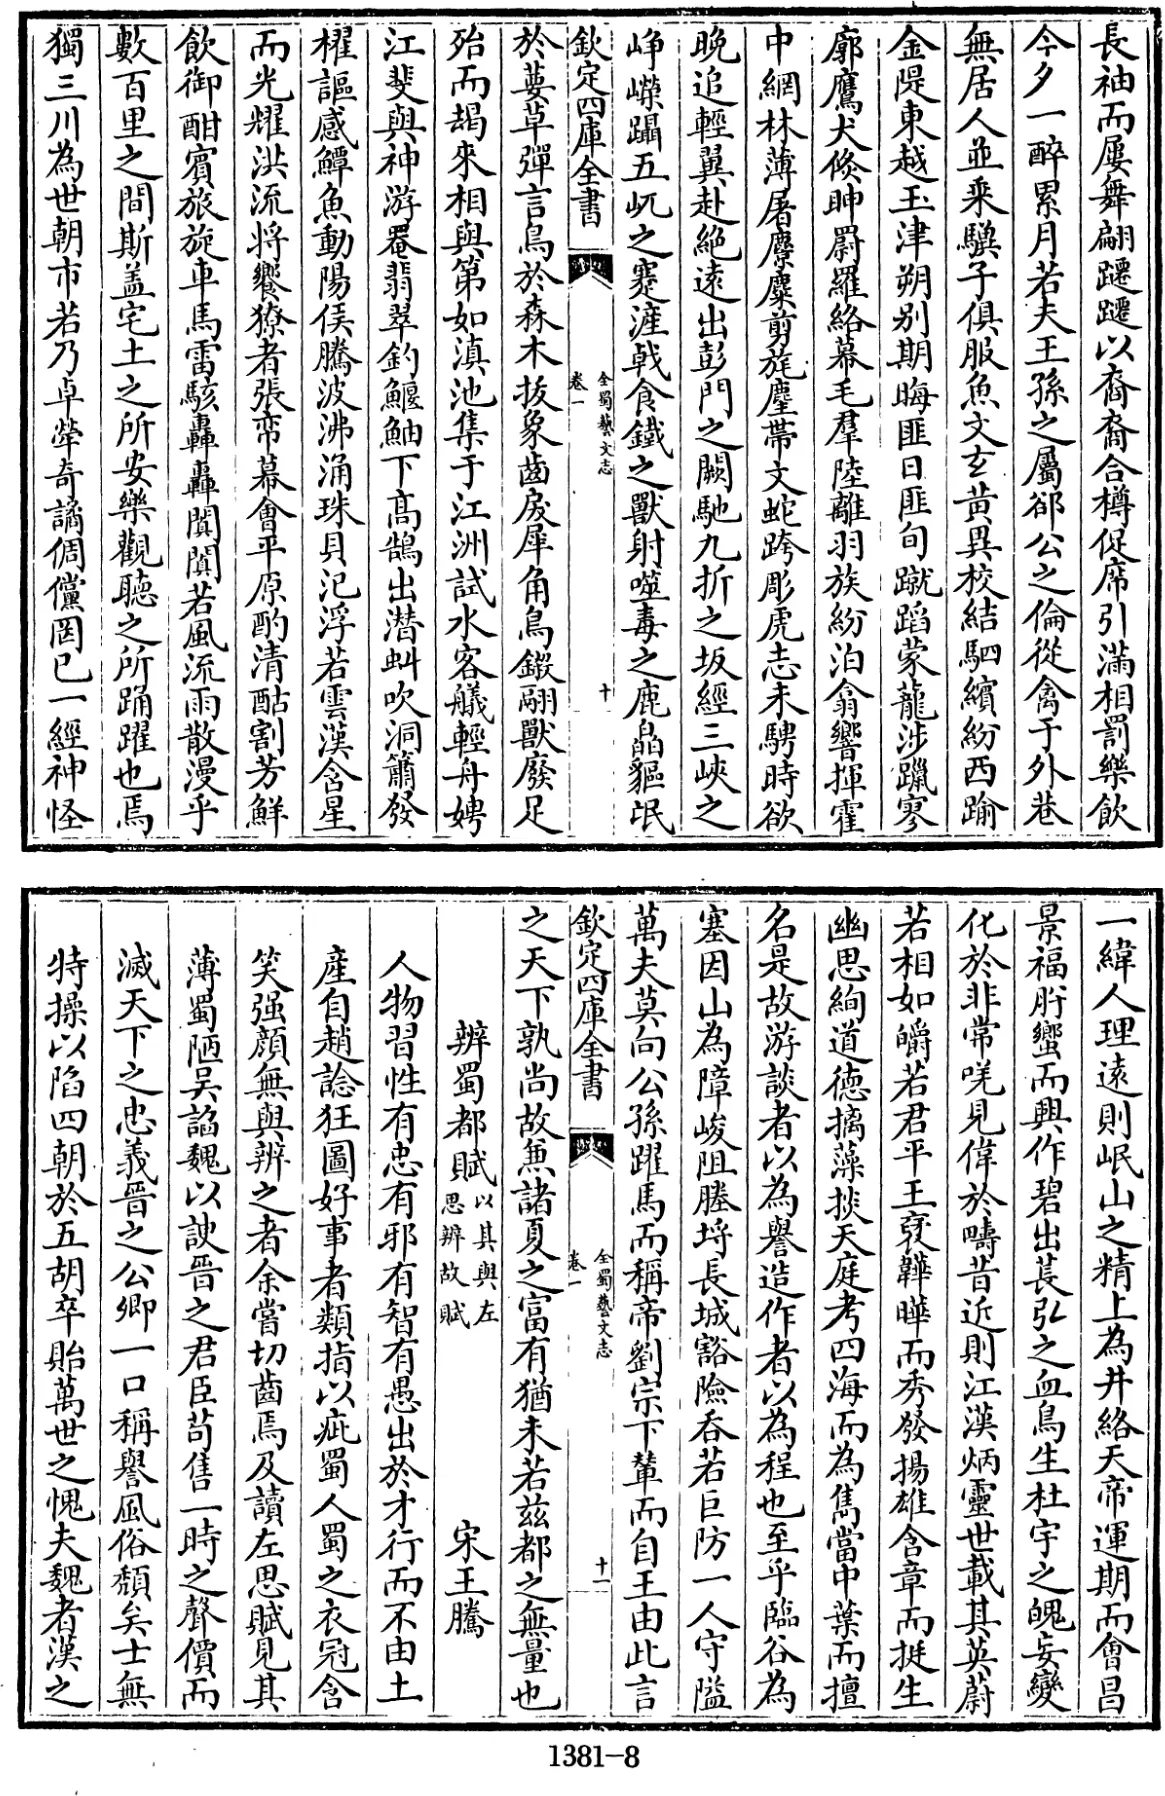 長袖而屢舞翩躚躚以裔裔合樽促席引滿相罰樂飲
今夕一醉累月若夫王孫之屬郤公之倫從禽于外巷
無居人並乘驥子俱服魚文玄黃異校結駟繽紛西踰
金隄東越玉津朔別期晦匪日匪旬蹴蹈蒙籠涉躐寥
廓鷹犬倐眒罻羅絡幕毛羣陸離羽族紛泊翕響揮霍
中網林薄屠麖麋剪旄麈帶文蛇跨彫虎志未騁時欲
晚追輕翼赴絶遠出彭門之闕馳九折之坂經三峽之
崢嶸躡五屼之蹇滻戟食鐵之獸射噬毒之鹿皛貙氓
欽定四庫全書
全蜀藝文志
卷一
十
於葽草彈言鳥於森木拔象齒戾犀角鳥鎩翮獸廢足
殆而朅來相與第如滇池集于江洲試水客艤輕舟娉
江斐與神游罨翡翠釣鰋鮋下高鵠出潛虯吹洞簫發
櫂謳感鱏魚動陽侯騰波沸涌珠貝汜浮若雲漢含星
而光耀洪流將饗獠者張帟幕會平原酌清酤割芳鮮
飲御酣賓旅旋車馬雷駭轟轟闐闐若風流雨散漫乎
數百里之間斯盖宅土之所安樂觀聽之所踊躍也焉
獨三川為世朝市若乃卓犖奇譎倜儻罔已一經神怪
一緯人理遠則岷山之精上為井絡天帝運期而會昌
景福肸蠁而興作碧出萇弘之血鳥生杜宇之魄妄變
化於非常咲見偉於疇昔近則江漢炳靈世載其英蔚
若相如皭若君平王襃韡曄而秀發揚雄含章而挺生
幽思絢道德摛藻掞天庭考四海而為雋當中葉而擅
名是故游談者以為譽造作者以為程也至乎臨谷為
塞因山為障峻阻塍埒長城豁險吞若巨防一人守隘
萬夫莫向公孫躍馬而稱帝劉宗下輦而自王由此言
欽定四庫全書
全蜀藝文志
卷一
十一
之天下孰尚故無諸夏之富有猶未若兹都之無量也
辨蜀都賦以其與左思辨故賦
宋王騰
人物習性有忠有邪有智有愚出於才行而不由土
產自趙諗狂圖好事者類指以疵蜀人蜀之衣冠含
笑强顏無與辨之者余嘗切齒焉及讀左思賦見其
薄蜀陋吳諂魏以諛晉之君臣苟售一時之聲價而
滅天下之忠義晉之公卿一口稱譽風俗頽矣士無
特操以陷四朝於五胡卒貽萬世之愧夫魏者漢之
1381-8